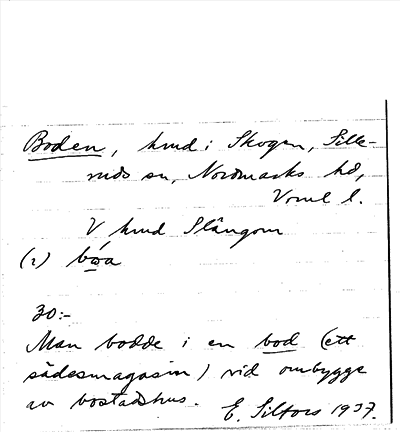 Boden, hmd i Skogen, Sille-
ruds sn, Nordmarks hd,
Värml l.
V hmd Slängom
(1) bɷ́a
30:-
Man bodde i en bod (ett
sädesmagasin) vid ombygge
av bostadshus. E. Silfors 1937.